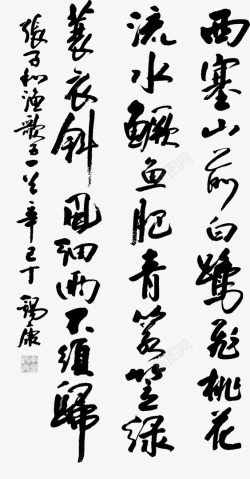 西塞山前白鹭飛桃花
流水鳜鱼肥青箬笠绿
蓑衣斜風细雨不须歸
張子和渔歌子一首辛巳丁錫康